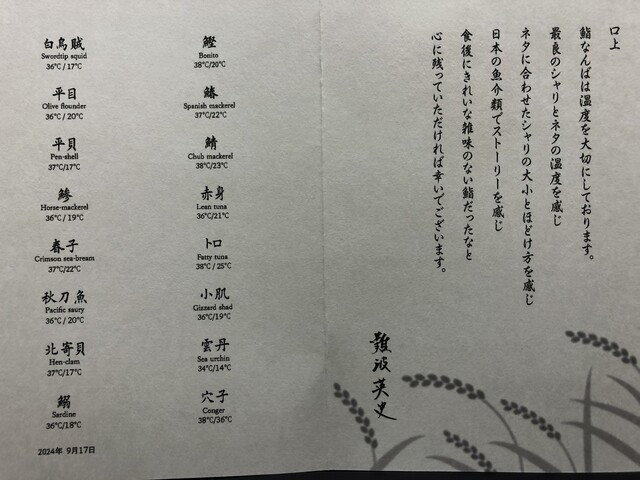 口上
鮨なんばは温度を大切にしております。
最良のシャリとネタの温度を感じ
ネタに合わせたシャリの大小とほどけ方を感じ
日本の魚介類でストーリーを感じ
食後にきれいな雑味のない鮨だったなと
心に残っていただければ幸いでございます。
難波英史
白烏賊
Swordtip squid
36℃/17℃
平目
Olive flounder
36℃/20℃
平貝
Pen-shell
37℃/17℃
鰺
Horse-mackerel
36℃/19℃
春子
Crimson sea-bream
37℃/22℃
秋刀魚
Pacific saury
36℃/20℃
北寄貝
Hen-clam
37℃/17℃
鰯
Sardine
36℃/18℃
鰹
Bonito
38℃/20℃
鰆
Spanish mackerel
37℃/22℃
鯖
Chub mackerel
38℃/23℃
赤身
Lean tuna
36℃/21℃
トロ
Fatty tuna
38℃/25℃
小肌
Gizzard shad
36℃/19℃
雲丹
Sea urchin
34℃/14℃
穴子
Conger
38℃/36℃
2024年 9月17日